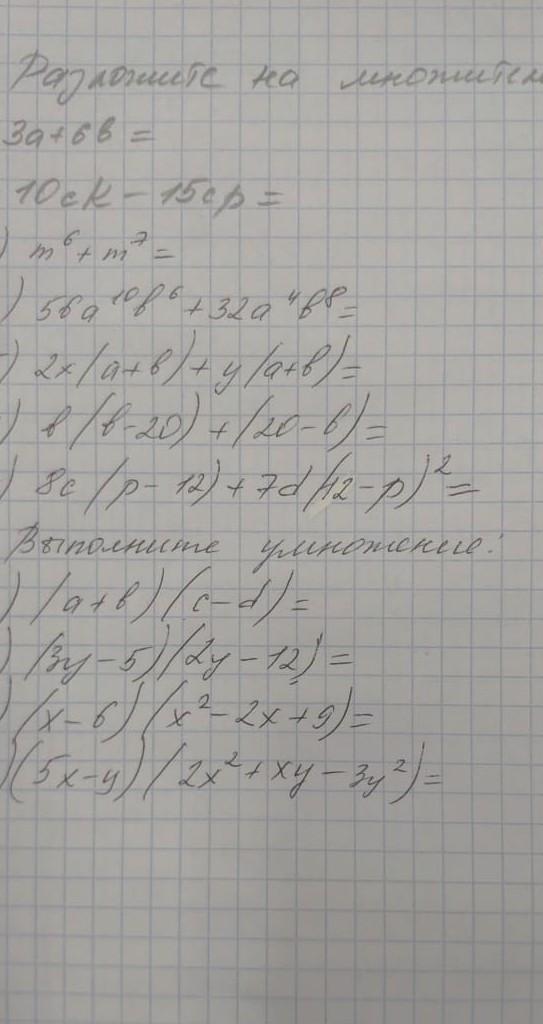 Разложите на множители
3a + 6b =
10ck - 15cp =
) m⁶ + m⁷ =
) 56a¹⁰b⁶ + 32a⁴b⁸ =
) 2x(a+b) + y(a+b) =
) b(b-20) + (20-b) =
) 8c(p-12) + 7d(12-p)² =
Выполните умножение:
) (a+b)(c-d) =
) (3y-5)(2y-12) =
) (x-6)(x²-2x+9) =
) (5x-y)(2x²+xy-3y²) =